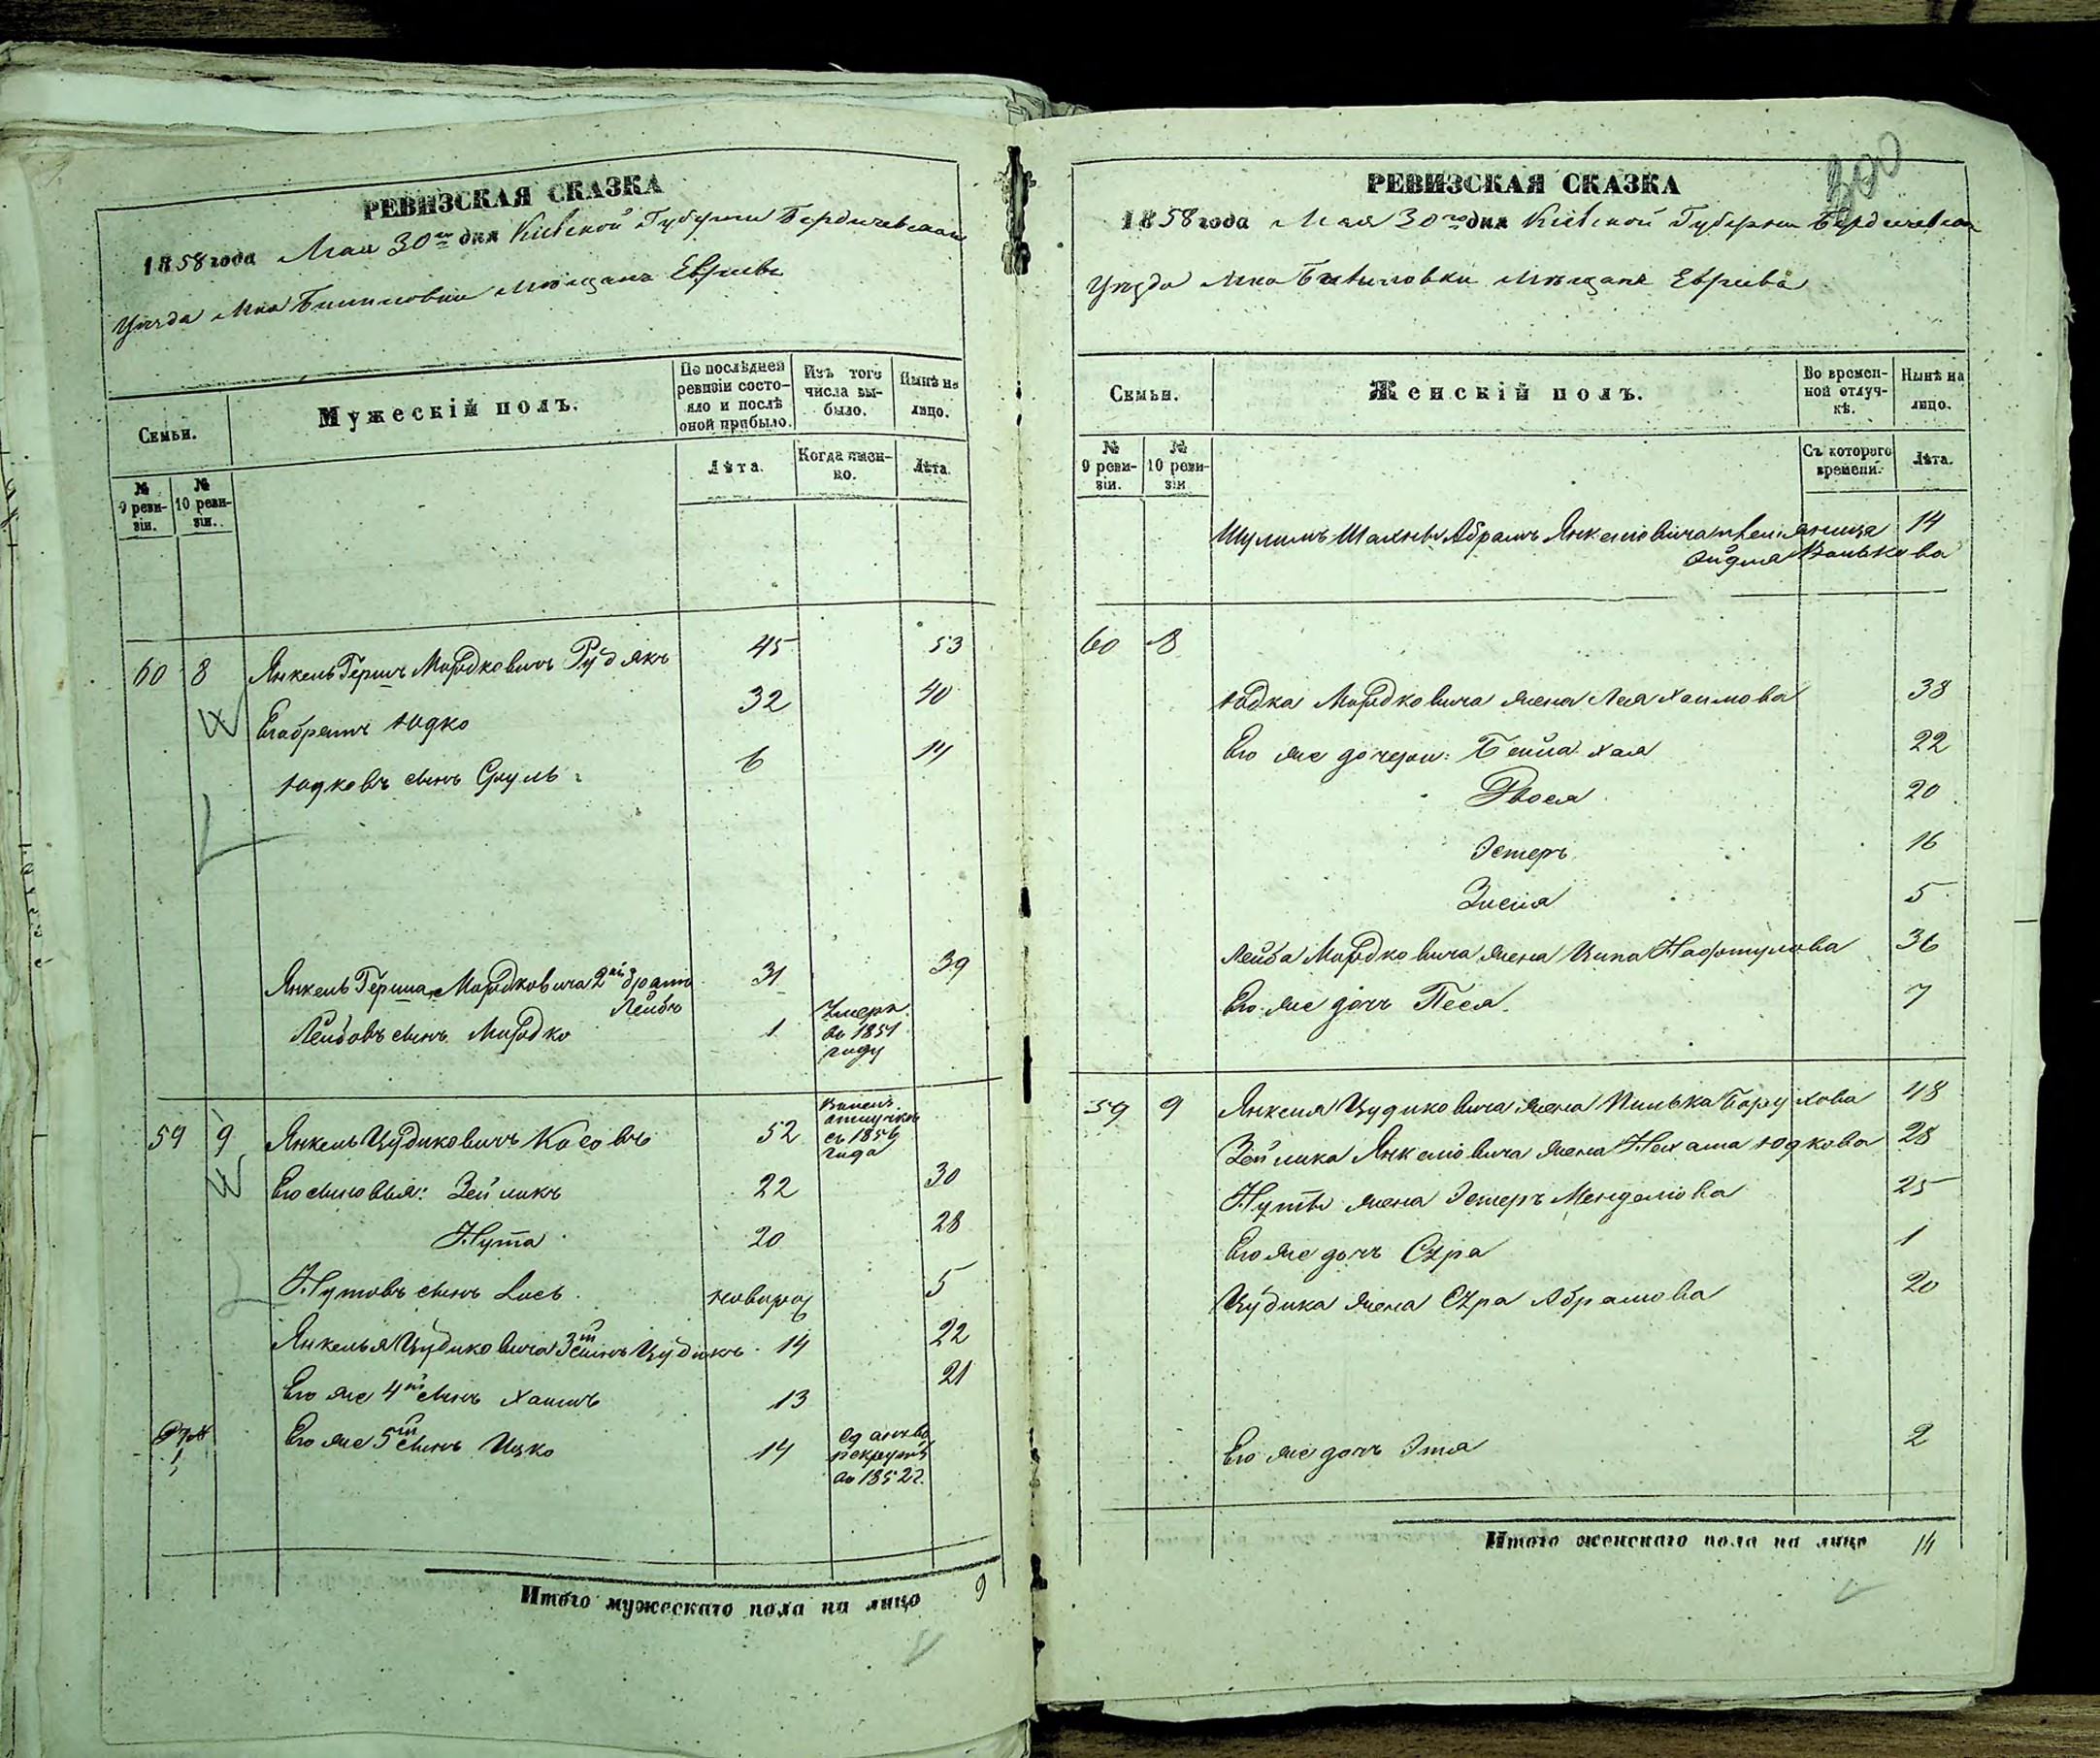 РЕВИЗСКАЯ СКАЗКА
1858 года Мая 30го дня Кіевской Губерніи Бердичевскаго
Уѣзда Мка Мѣщанъ Евреевъ
Семьи.
Мужескій полъ.
По послѣдней ревизіи состояло и послѣ оной прибыло.
Изъ того числа выбыло.
Нынѣ на лицо.
№ 9 ревизіи.
№ 10 ревизіи.
Лѣта.
Когда именно.
Лѣта.
60 8 Янкель Гершъ Мордковичъ Рудякъ 45 53
Его братъ Юдко 32 40
Юдковъ сынъ Сруль 6 14
Янкель Герша Мордковича 2й братъ Лейба 31 39
Лейбовъ сынъ Мордко 1 Умеръ въ 1851 году
59 9 Янкель Цудиковичъ Косовъ 52 отлучкѣ съ 1856 года
Его сыновья: Зейликъ 22 30
Нута 20 28
Нутовъ сынъ Іось новорож 5
Янкеля Цудиковича 3й сынъ Цудикъ 14 22
Его же 4й сынъ Хаимъ 13 21
Его же 5й сынъ Ицко 14 въ рекруты въ 1852 г.
Итого мужескаго пола на лицо 9
300
РЕВИЗСКАЯ СКАЗКА
1858 года Мая 30го дня Кіевской Губерніи Бердичевскаго
Уѣзда Мка Мѣщанъ Евреевъ
Семьи.
Женскій полъ.
Во временной отлучкѣ.
Нынѣ на лицо.
№ 9 ревизіи.
№ 10 ревизіи
Съ котораго времени.
Лѣта.
Шулимъ Шахны Абрамъ Янкеліовича племяница 14
60 8
Юдка Мордковича жена Лея Хаимова 38
Его же дочери: Бейла Хая 22
Двося 20
Эстеръ 16
Зисля 5
Лейба Мордковича жена Ципа Нафтулова 36
Его же дочь Песя. 7
59 9 Янкеля Цудиковича жена Борухова 48
Зейлика Янкеліовича жена Нехама Юдкова 28
Нуты жена Эстеръ Менделіова 25
Его же дочь Сура 1
Цудика жена Сура Абрамова 20
Его же дочь Этя 2
Итого женскаго пола на лицо 14